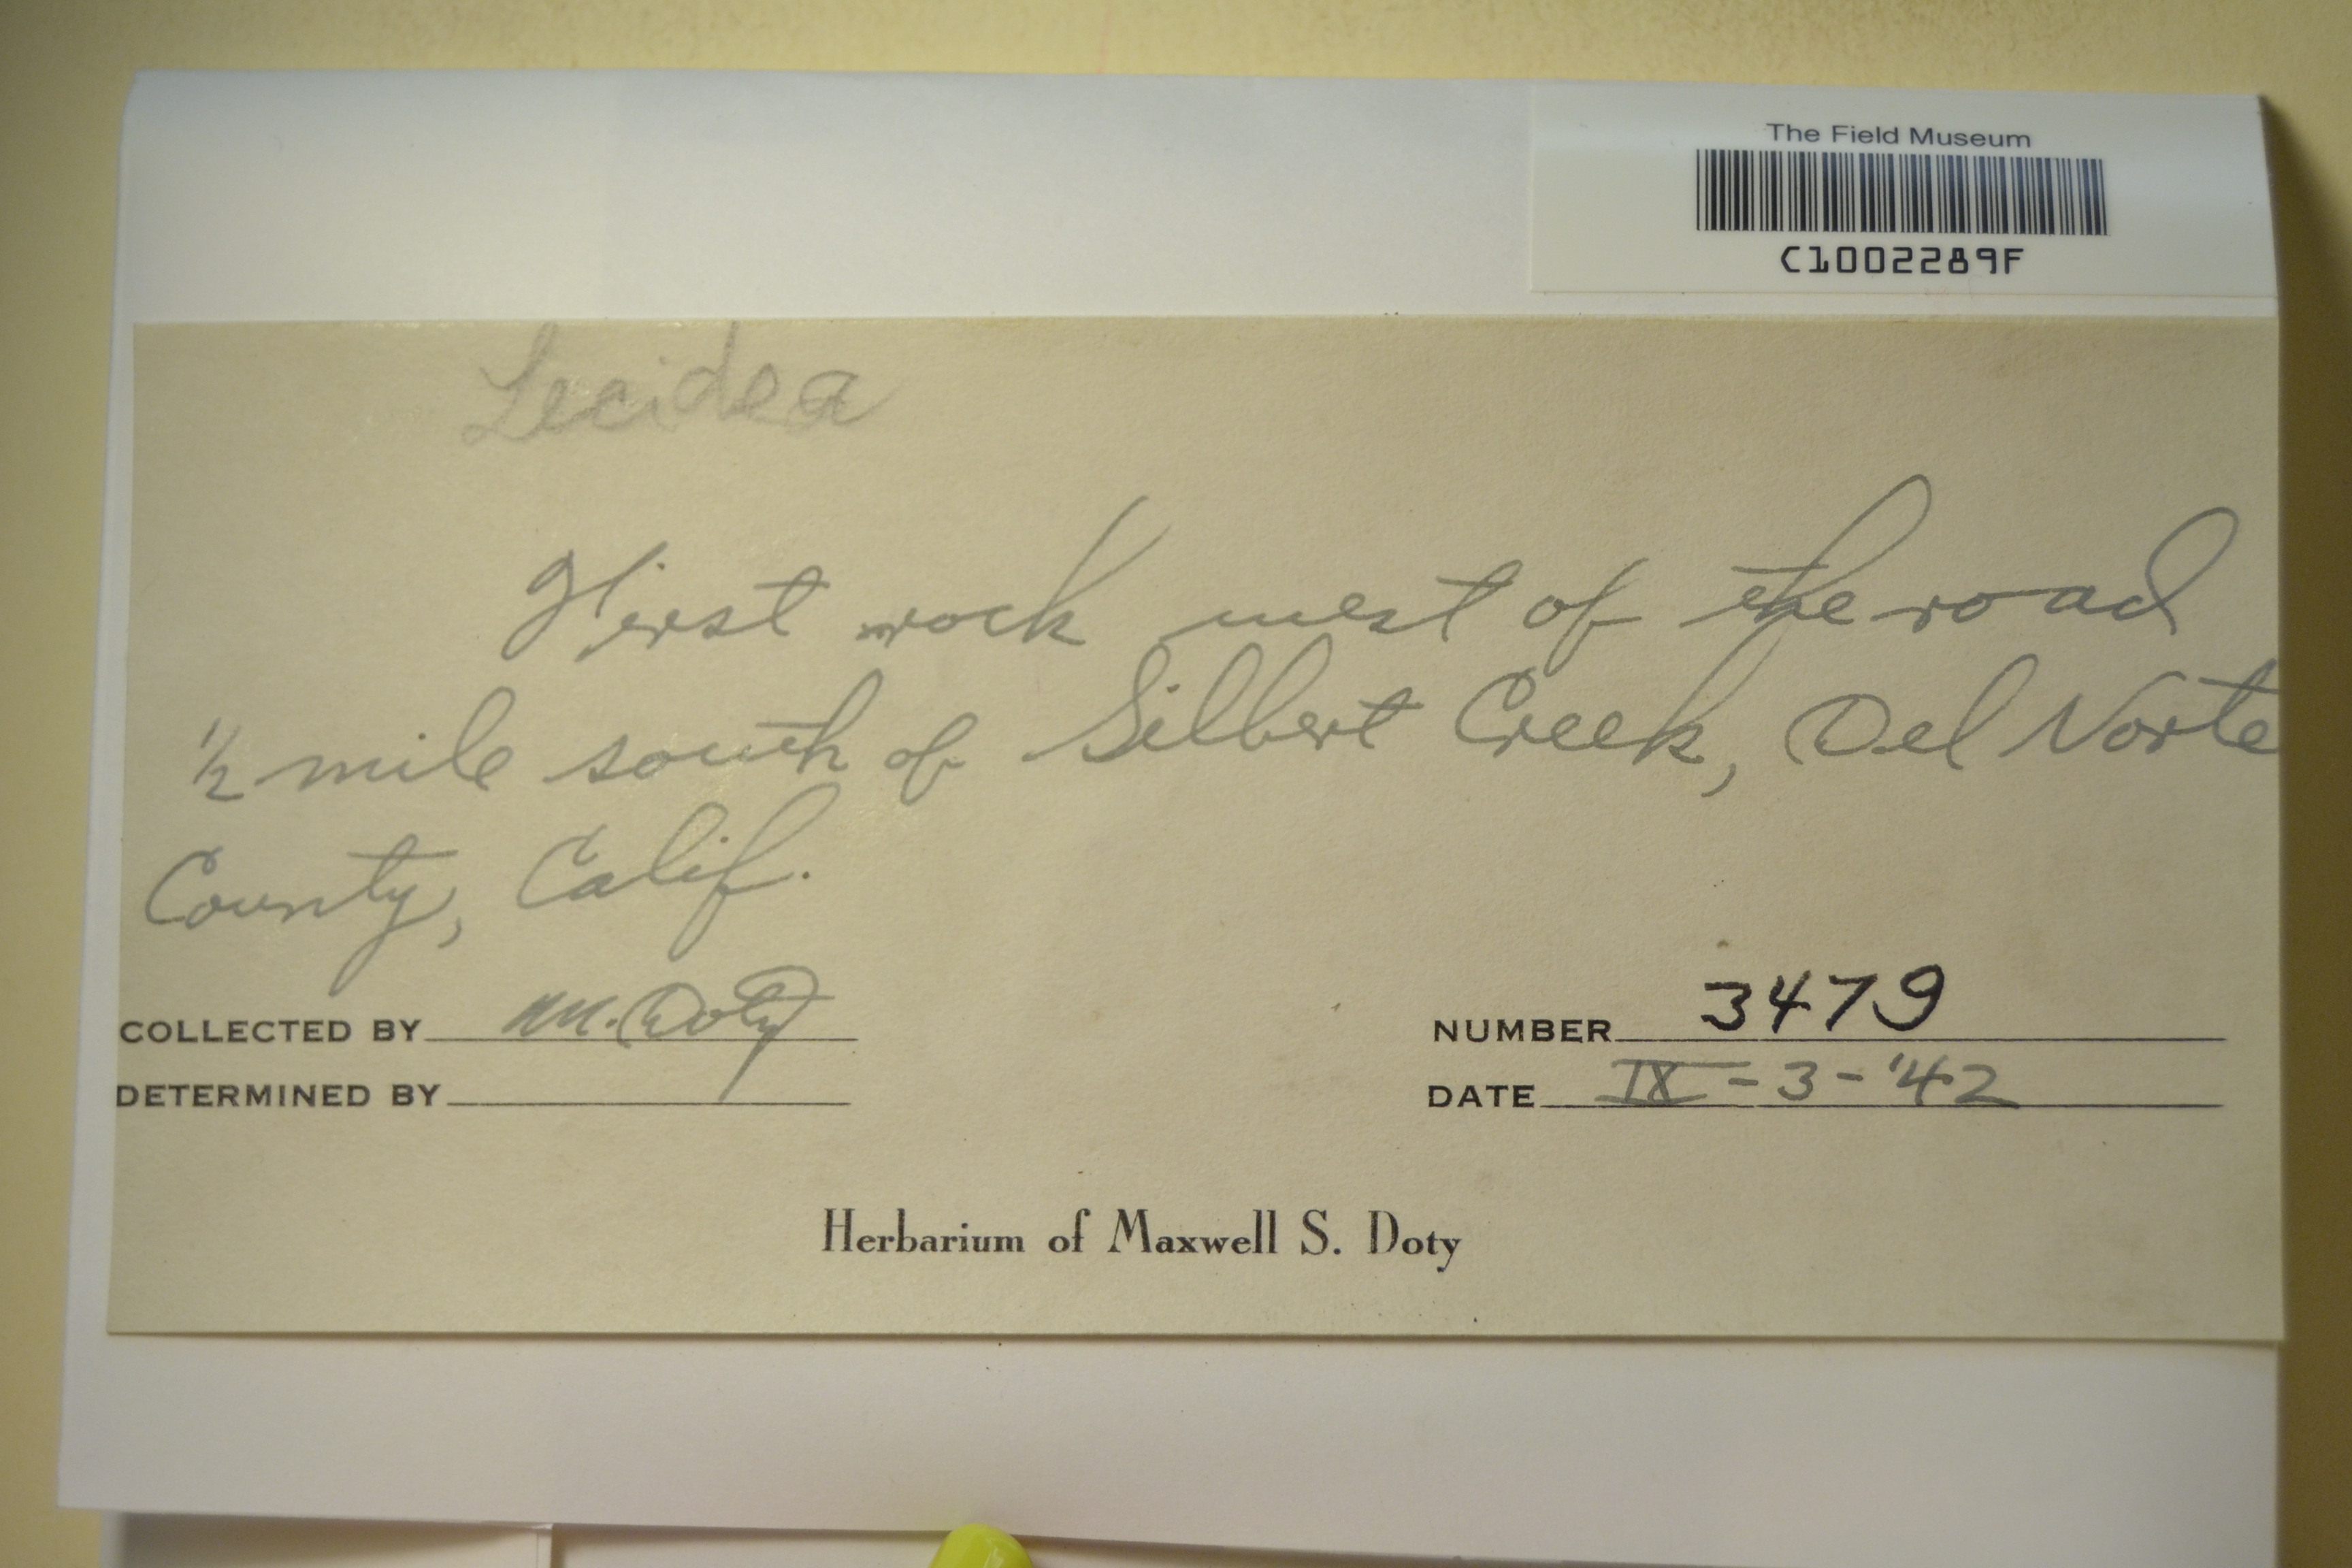 The Field Museum
C1002289F
Lecidea
First rock west of the road
½ mile south of Silbert Creek, Del Norte
County, Calif.
COLLECTED BY M. Doty
NUMBER 3479
DETERMINED BY
DATE IX-3-'42
Herbarium of Maxwell S. Doty